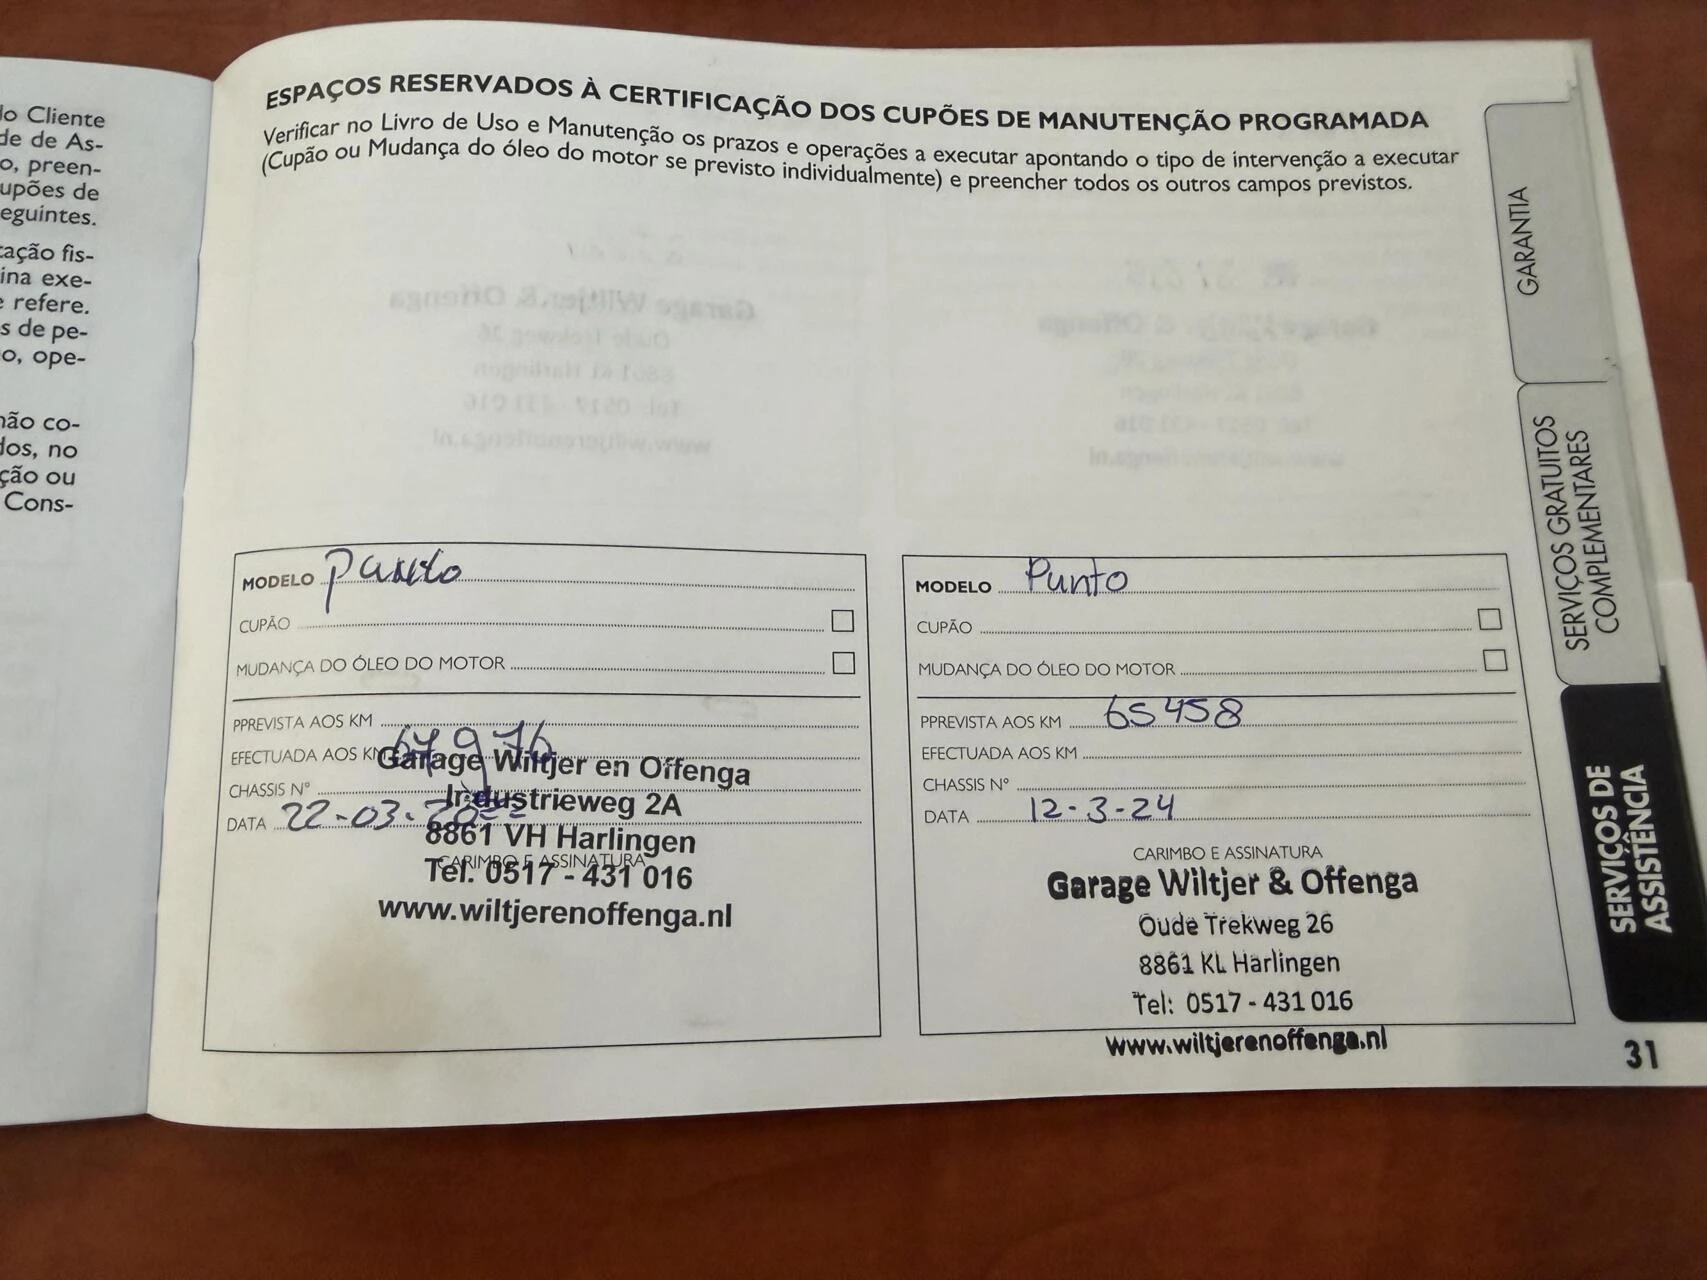 do Cliente
de de As-
o, preen-
upões de
eguintes.
tação fis-
ina exe-
e refere.
s de pe-
o, ope-
não co-
dos, no
ção ou
Cons-
ESPAÇOS RESERVADOS À CERTIFICAÇÃO DOS CUPÕES DE MANUTENÇÃO PROGRAMADA
Verificar no Livro de Uso e Manutenção os prazos e operações a executar apontando o tipo de intervenção a executar
(Cupão ou Mudança do óleo do motor se previsto individualmente) e preencher todos os outros campos previstos.
MODELO Punto
CUPÃO
MUDANÇA DO ÓLEO DO MOTOR
PPREVISTA AOS KM
EFECTUADA AOS KM
CHASSIS N°
DATA 22-03-
CARIMBO E ASSINATURA
Garage Wiltjer en Offenga
Industrieweg 2A
8861 VH Harlingen
Tel. 0517 - 431 016
www.wiltjerenoffenga.nl
MODELO Punto
CUPÃO
MUDANÇA DO ÓLEO DO MOTOR
PPREVISTA AOS KM 65458
EFECTUADA AOS KM
CHASSIS N°
DATA 12-3-24
CARIMBO E ASSINATURA
Garage Wiltjer & Offenga
Oude Trekweg 26
8861 KL Harlingen
Tel: 0517 - 431 016
www.wiltjerenoffenga.nl
GARANTIA
SERVIÇOS GRATUITOS
COMPLEMENTARES
SERVIÇOS DE
ASSISTÊNCIA
31